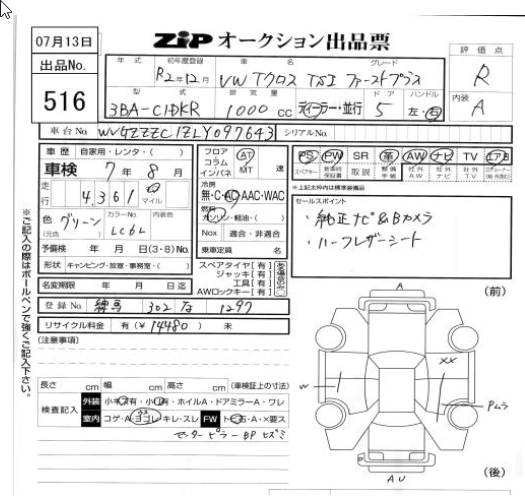 07月13日
ZIP オークション出品票
出品No.
516
評価点
R
内装
A
年式 初年度登録 車名 グレード
R2年12月 VW Tクロス TSI ファーストプラス
型式 排気量 ドア ハンドル
3BA-C1DKR 1000 cc ディーラー・並行 5 左・右
車台No. WVGZZZC1ZLY097643 シリアルNo.
車歴 自家用・レンタ・( )
車検 7年8月
走行 4,361 マイル
色 グリーン カラーNo. LC6L 内装色
予備検 年 月 日(3・8)No.
形状 キャンピング・放宣・事務室・( )
名変期限 年 月 日迄
登録No. 練馬 302 な 1297
リサイクル料金 有(¥14480) 未
(注意事項)
フロア コラム インパネ AT MT 速
冷房 無・C・AC・AAC・WAC
燃料 ガソリン・軽油・( )
Nox 適合・非適合
乗車定員 名
スペアタイヤ[有]
ジャッキ[有]
工具[有]
AWロックキー[有]
PS PW SR 革 AW ナビ TV エアB
スペアキー 新車時保証書 取説 整備手帳 社外AW 社外ナビ 社外TV
※上記太枠内は標準装備品
セールスポイント
・純正ナビ&Bカメラ
・ハーフレザーシート
※ご記入の際はボールペンで強くご記入下さい。
長さ cm 幅 cm 高さ cm (車検証上の寸法)
検査記入 外装 小キズ有・小凹有・ホイルA・ドアミラーA・ワレ
室内 コゲ・A・ヨゴレ・キレ・スレ FW トビ石・A・×要ス
センターピラーBP ヒズミ
A
(前)
W
XX
Pムラ
AU
(後)